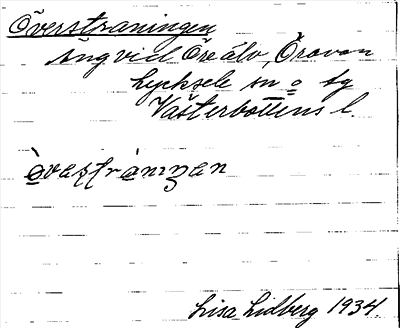 Överstraningen
äng vid Öre älv, Öravan
Lycksele sn o tg
Västerbottens l.
Lisa Lidberg 1934